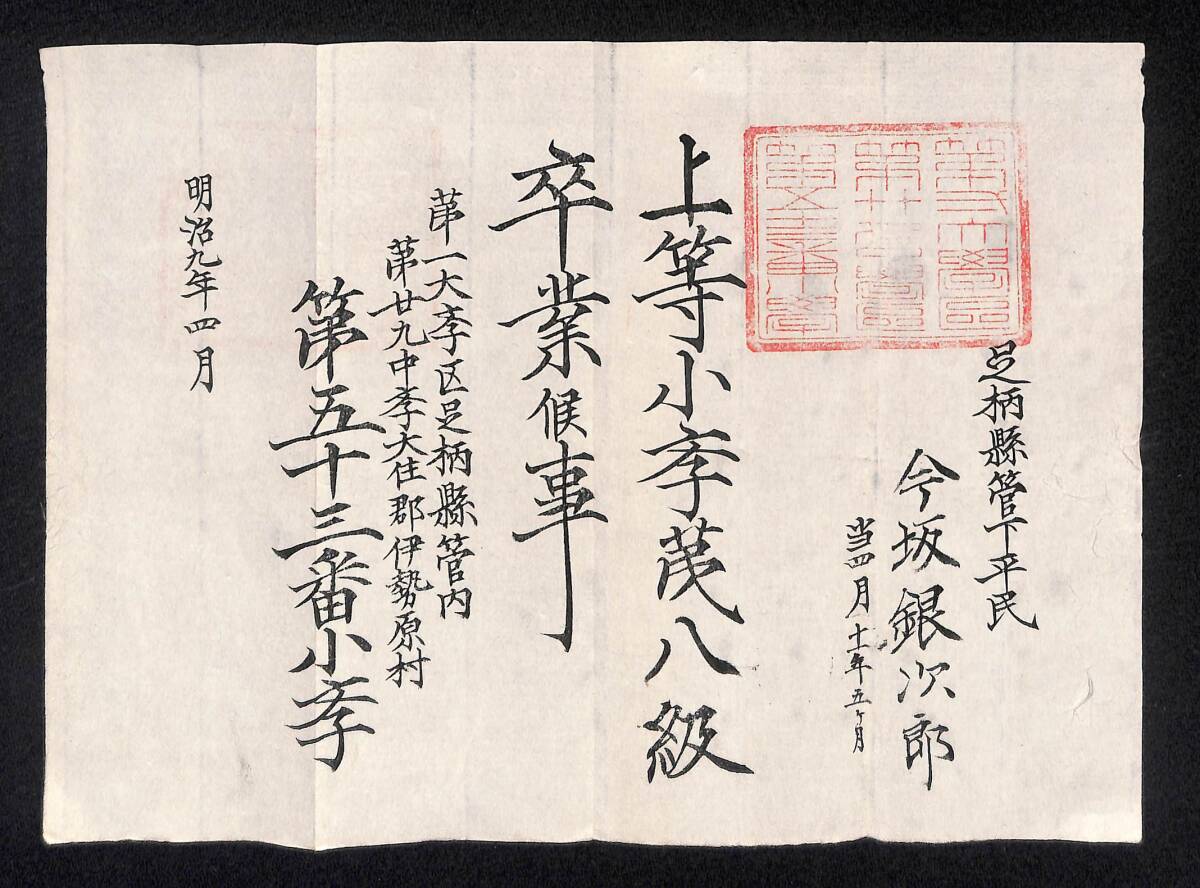 足柄縣管下平民
今坂銀次郎
当四月十一年五ヶ月
上等小斈苐八級
卒業候事
苐一大斈区足柄縣管内
苐廿九中斈大住郡伊勢原村
第五十三番小斈
明治九年四月